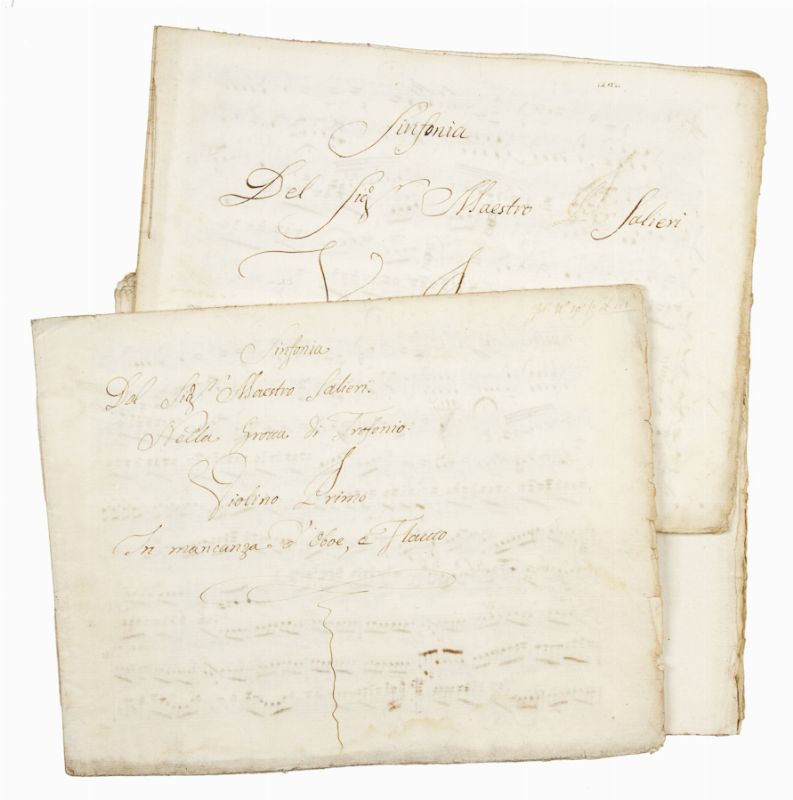 Sinfonia
Del Sigr Maestro Salieri
Sinfonia
Del Sigr Maestro Salieri.
Nella Grotta di Trofonio.
Violino Primo
In mancanza d'Oboe, e Flauto